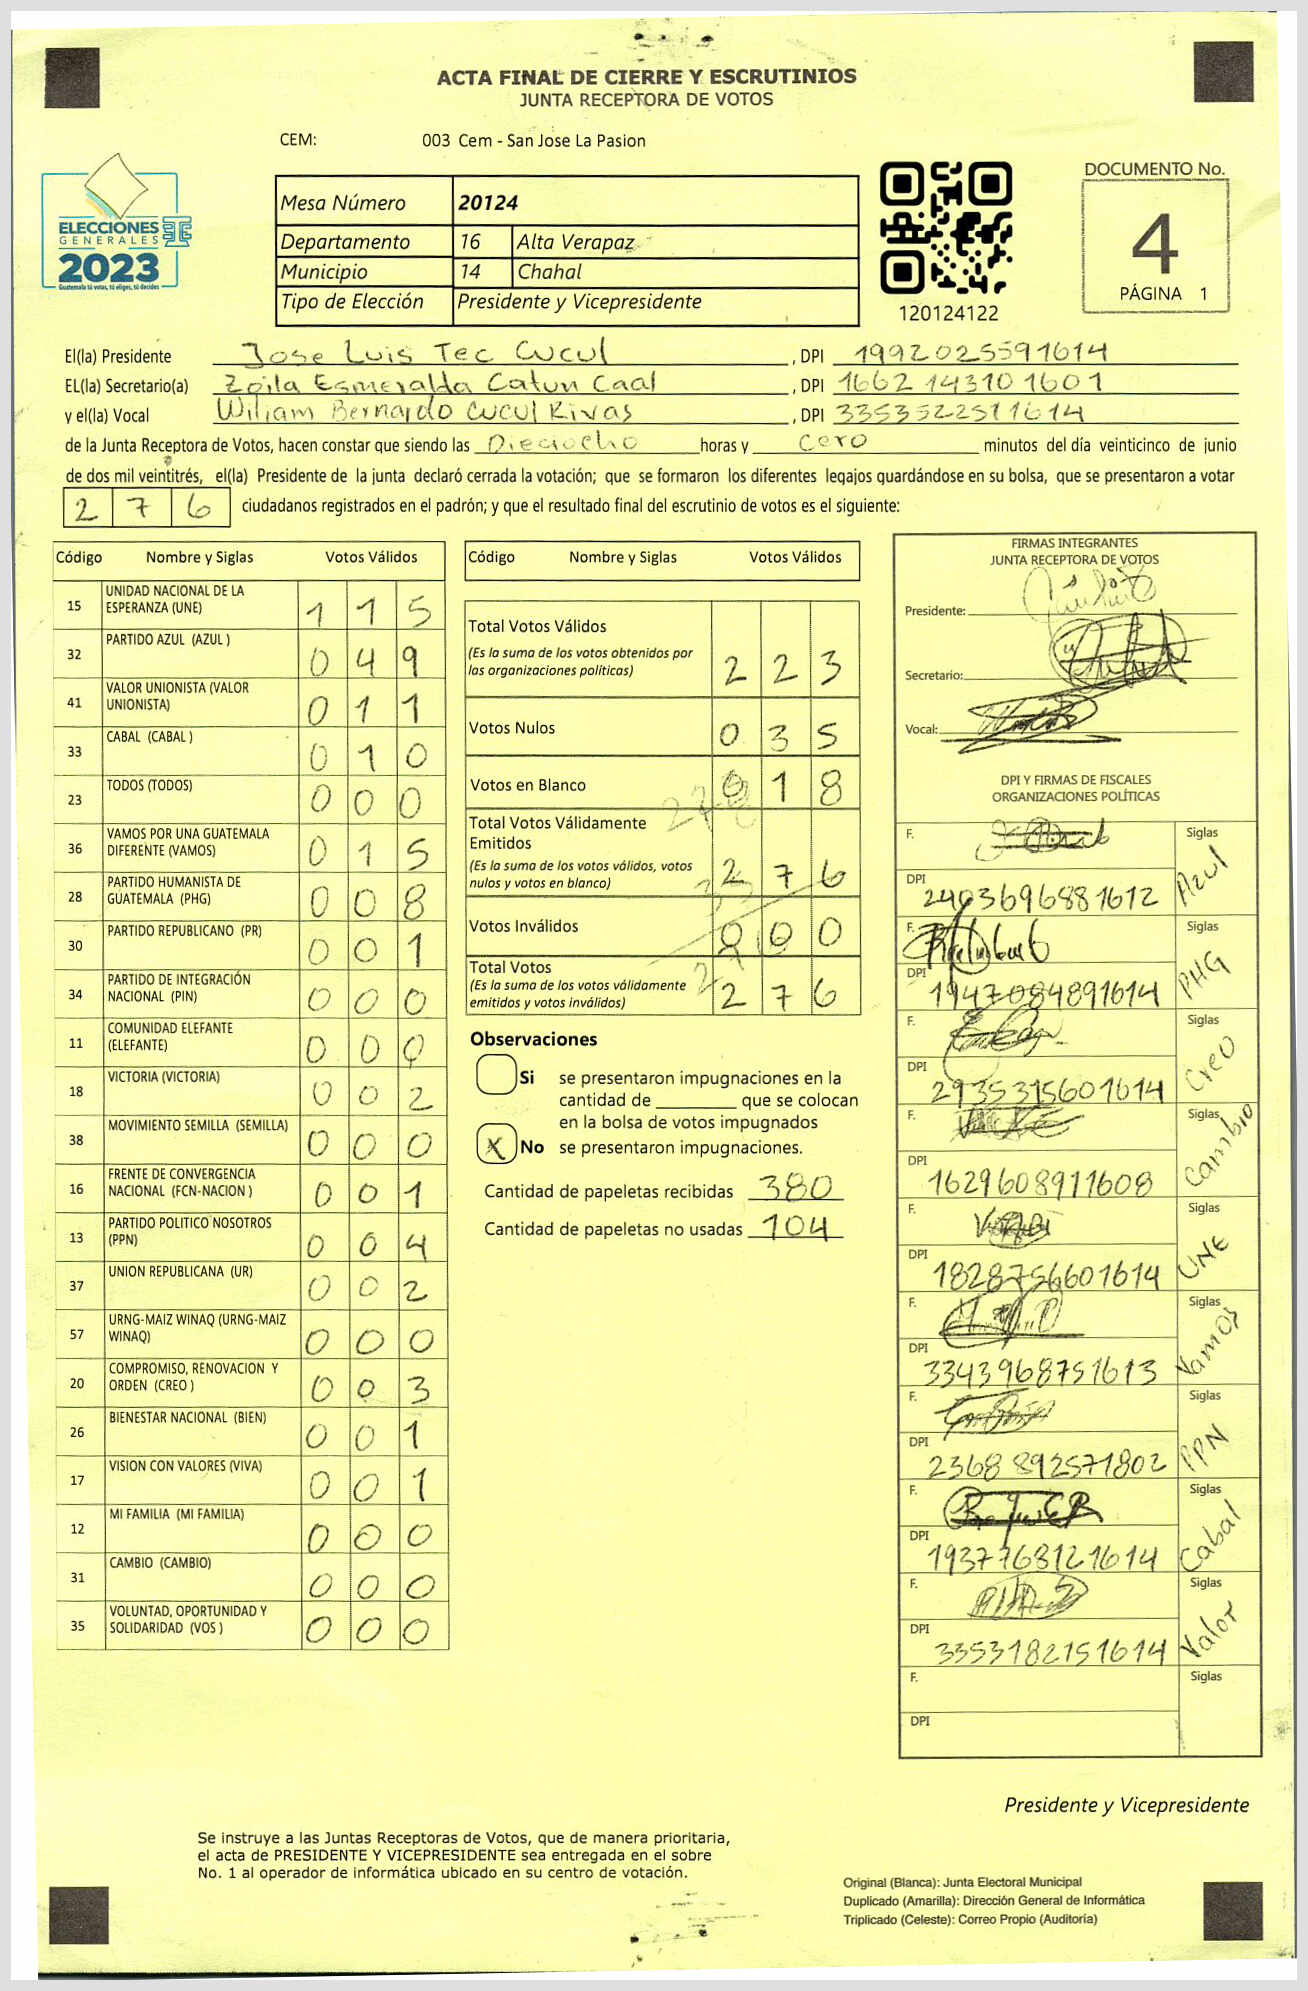 ACTA FINAL DE CIERRE Y ESCRUTINIOS
JUNTA RECEPTORA DE VOTOS
CEM: 003 Cem - San Jose La Pasion
ELECCIONES
GENERALES
2023
Guatemala tú votas, tú eliges, tú decides
Mesa Número 20124
Departamento 16 Alta Verapaz
Municipio 14 Chahal
Tipo de Elección Presidente y Vicepresidente
120124122
DOCUMENTO No.
4
PÁGINA 1
El(la) Presidente Jose Luis Tec Cucul, DPI 1992025591614
EL(la) Secretario(a) Zoila Esmeralda Catun Caal, DPI 1662143101601
y el(la) Vocal Wiliam Bernardo Cucul Rivas, DPI 3353522511614
de la Junta Receptora de Votos, hacen constar que siendo las Dieciocho horas y cero minutos del día veinticinco de junio
de dos mil veintitrés, el(la) Presidente de la junta declaró cerrada la votación; que se formaron los diferentes legajos guardándose en su bolsa, que se presentaron a votar
276 ciudadanos registrados en el padrón; y que el resultado final del escrutinio de votos es el siguiente:
Código Nombre y Siglas Votos Válidos
15 UNIDAD NACIONAL DE LA ESPERANZA (UNE) 115
32 PARTIDO AZUL (AZUL ) 049
41 VALOR UNIONISTA (VALOR UNIONISTA) 011
33 CABAL (CABAL ) 010
23 TODOS (TODOS) 000
36 VAMOS POR UNA GUATEMALA DIFERENTE (VAMOS) 015
28 PARTIDO HUMANISTA DE GUATEMALA (PHG) 008
30 PARTIDO REPUBLICANO (PR) 001
34 PARTIDO DE INTEGRACIÓN NACIONAL (PIN) 000
11 COMUNIDAD ELEFANTE (ELEFANTE) 000
18 VICTORIA (VICTORIA) 002
38 MOVIMIENTO SEMILLA (SEMILLA) 000
16 FRENTE DE CONVERGENCIA NACIONAL (FCN-NACION ) 001
13 PARTIDO POLITICO NOSOTROS (PPN) 004
37 UNION REPUBLICANA (UR) 002
57 URNG-MAIZ WINAQ (URNG-MAIZ WINAQ) 000
20 COMPROMISO, RENOVACION Y ORDEN (CREO ) 003
26 BIENESTAR NACIONAL (BIEN) 001
17 VISION CON VALORES (VIVA) 001
12 MI FAMILIA (MI FAMILIA) 000
31 CAMBIO (CAMBIO) 000
35 VOLUNTAD, OPORTUNIDAD Y SOLIDARIDAD (VOS ) 000
Código Nombre y Siglas Votos Válidos
Total Votos Válidos 223
(Es la suma de los votos obtenidos por
las organizaciones políticas)
Votos Nulos 035
Votos en Blanco 018
Total Votos Válidamente
Emitidos 276
(Es la suma de los votos válidos, votos
nulos y votos en blanco)
Votos Inválidos 000
Total Votos 276
(Es la suma de los votos válidamente
emitidos y votos inválidos)
Observaciones
Si se presentaron impugnaciones en la
cantidad de ________ que se colocan
en la bolsa de votos impugnados
X No se presentaron impugnaciones.
Cantidad de papeletas recibidas 380
Cantidad de papeletas no usadas 104
FIRMAS INTEGRANTES
JUNTA RECEPTORA DE VOTOS
Presidente:
Secretario:
Vocal:
DPI Y FIRMAS DE FISCALES
ORGANIZACIONES POLÍTICAS
F. Siglas Azul
DPI 2403696881612
F. Siglas PHG
DPI 1947084891614
F. Siglas Creo
DPI 2935315601614
F. Siglas Cambio
DPI 1629608911608
F. Siglas UNE
DPI 1828756601614
F. Siglas Vamos
DPI 3343968751613
F. Siglas PPN
DPI 2368892571802
F. Siglas Cabal
DPI 1937768121614
F. Siglas Valor
DPI 3353182151614
F. Siglas
DPI
Presidente y Vicepresidente
Se instruye a las Juntas Receptoras de Votos, que de manera prioritaria,
el acta de PRESIDENTE Y VICEPRESIDENTE sea entregada en el sobre
No. 1 al operador de informática ubicado en su centro de votación.
Original (Blanca): Junta Electoral Municipal
Duplicado (Amarilla): Dirección General de Informática
Triplicado (Celeste): Correo Propio (Auditoría)